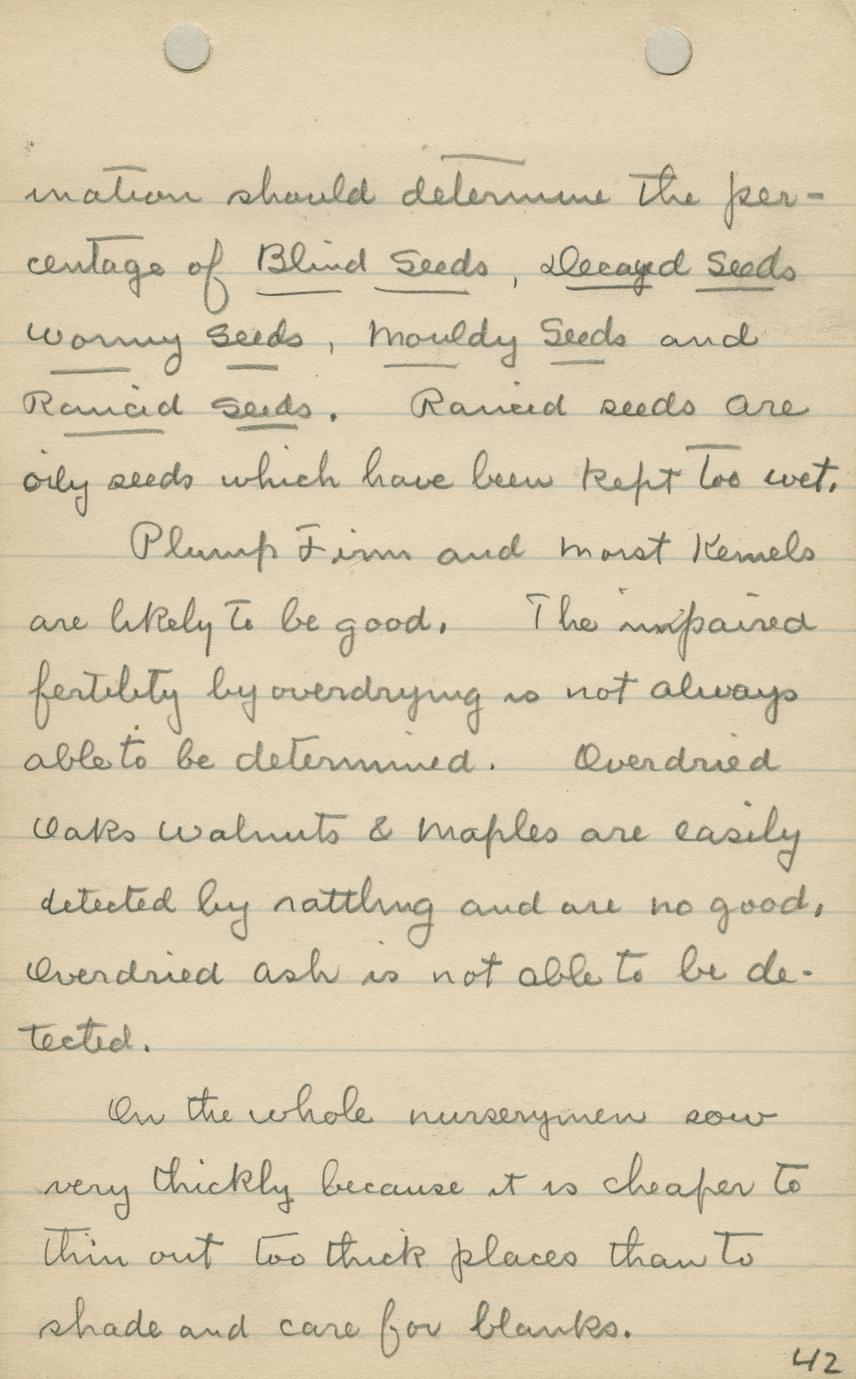 ination should determine the per-
centage of Blind Seeds, Decayed Seeds
Wormy Seeds, Mouldy Seeds and
Rancid Seeds. Rancid seeds are
oily seeds which have been kept too wet.
Plump Firm and Moist Kernels
are likely to be good. The impaired
fertility by overdrying is not always
able to be determined. Overdried
Oaks Walnuts & Maples are easily
detected by rattling and are no good,
Overdried Ash is not able to be de-
tected.
On the whole nurserymen sow
very thickly because it is cheaper to
thin out too thick places than to
shade and care for blanks.
42